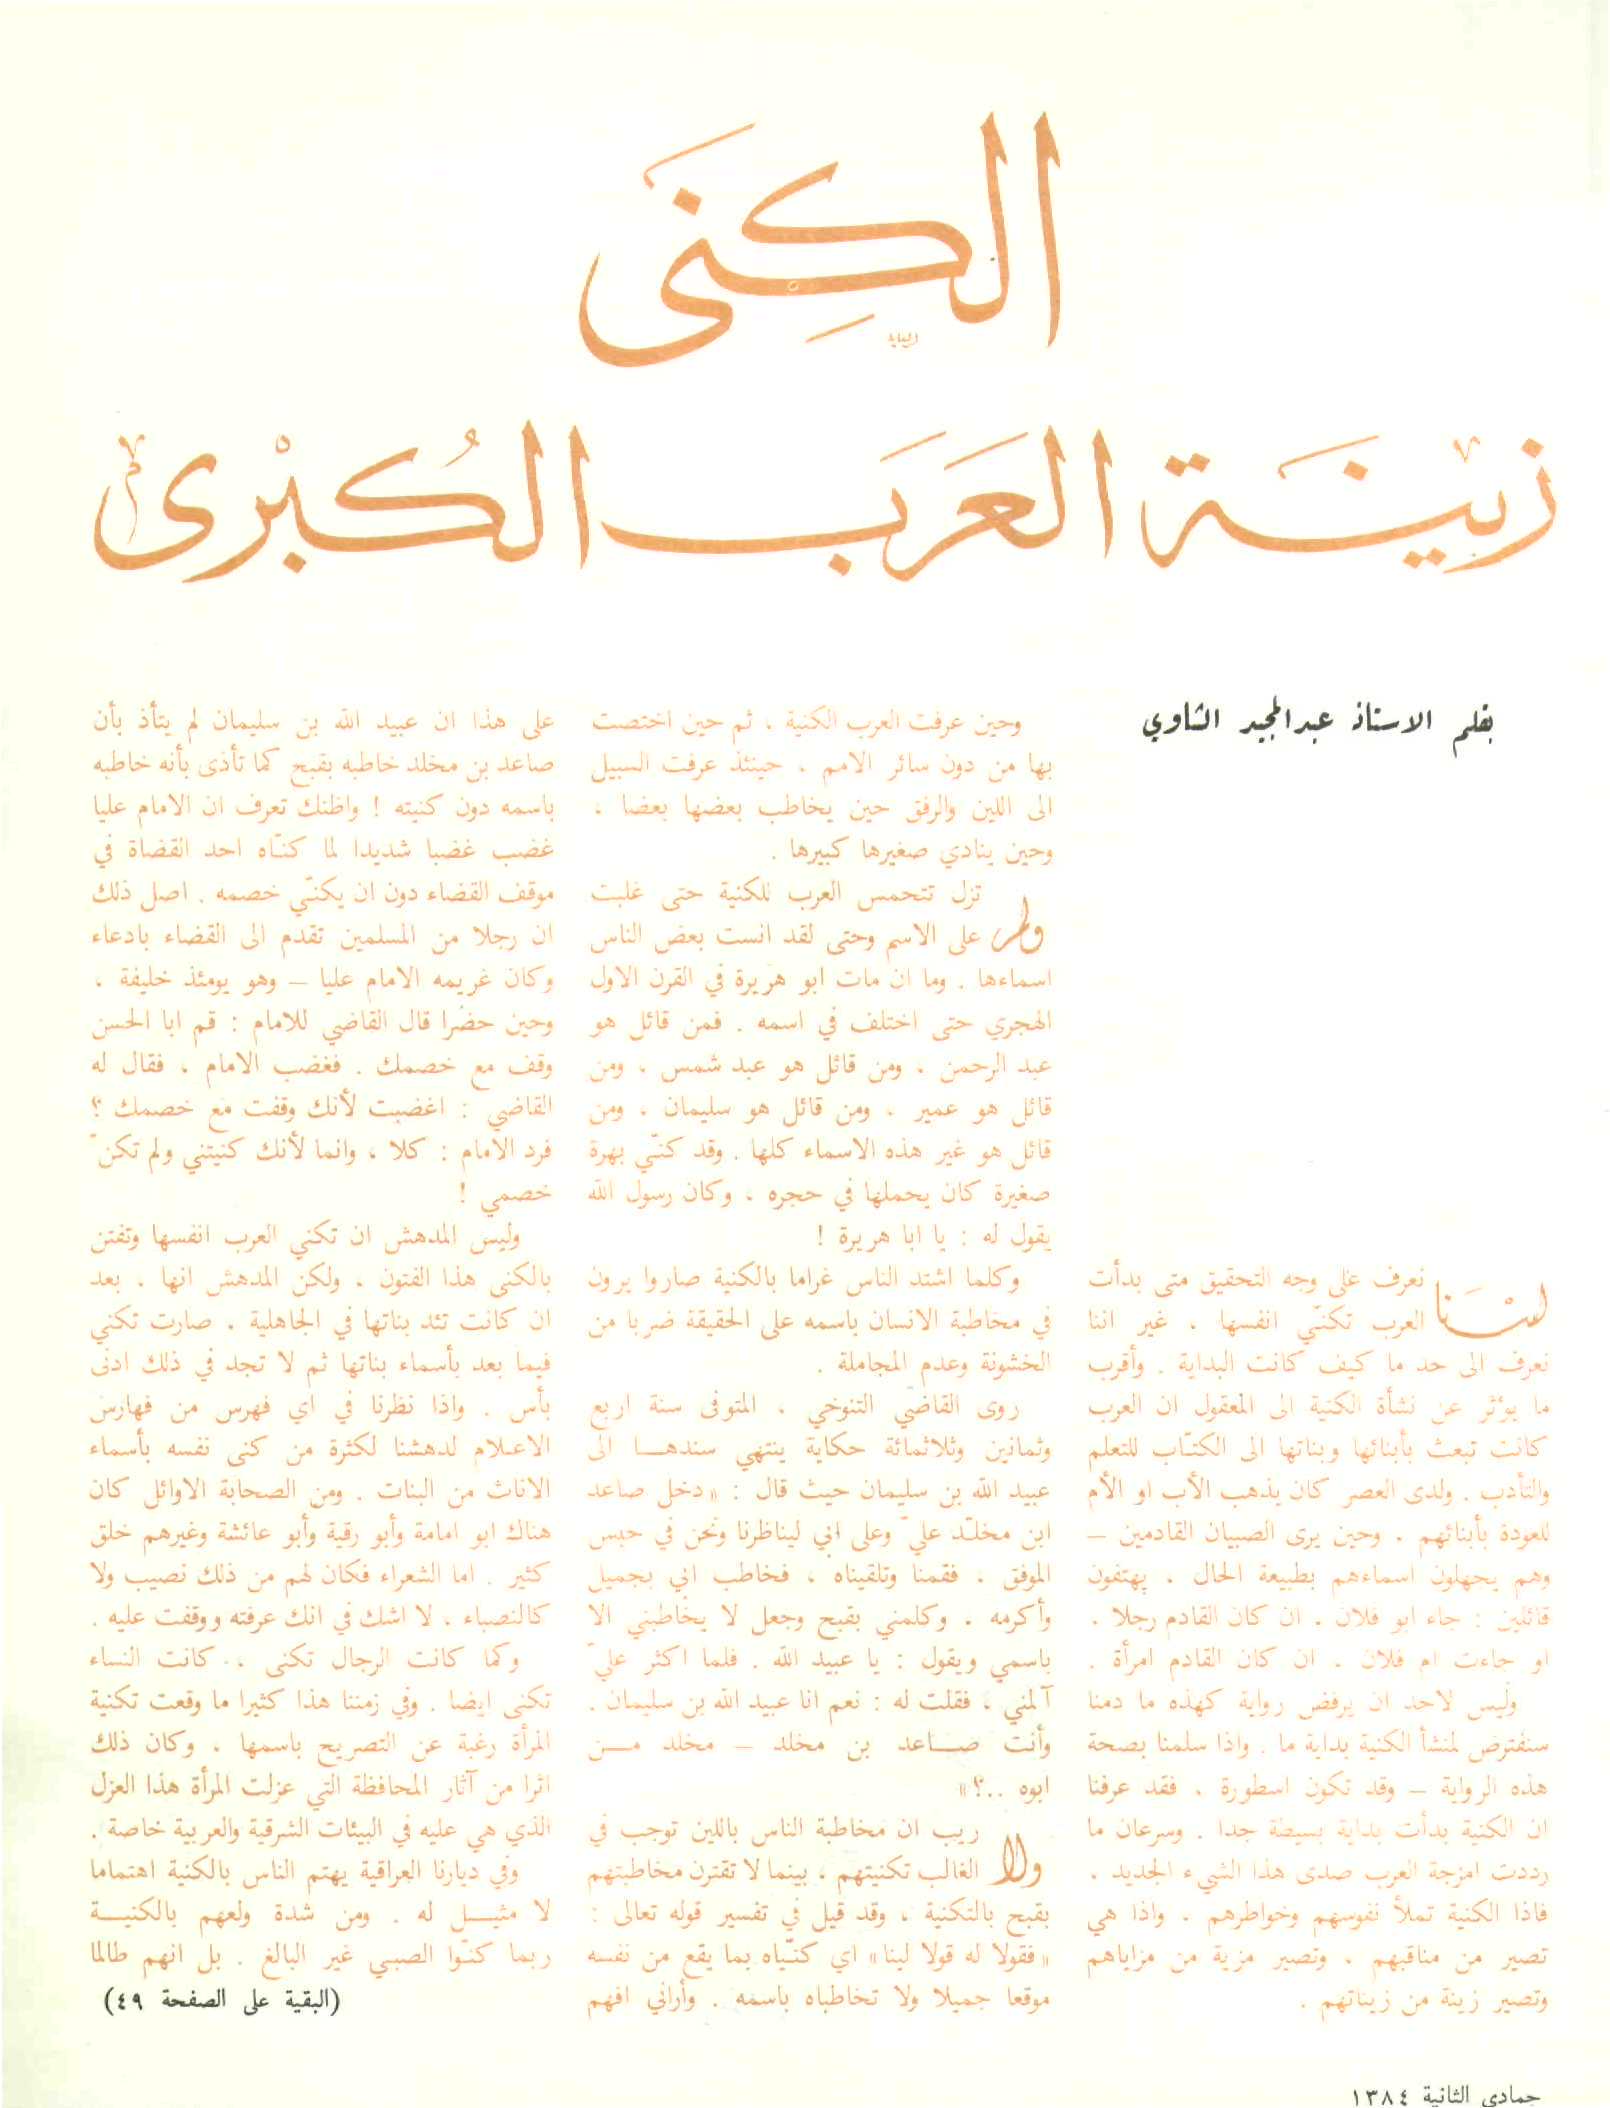 الكِنَى
زينَة العَرَب الكُبْرى
بقلم الاستاذ عبدالمجيد الشاوي
لسْنَا نعرف على وجه التحقيق متى بدأت
العرب تكنّي انفسها ، غير اننا
نعرف الى حد ما كيف كانت البداية . وأقرب
ما يؤثر عن نشأة الكنية الى المعقول ان العرب
كانت تبعث بأبنائها وبناتها الى الكتّاب للتعلم
والتأدب . ولدى العصر كان يذهب الأب او الأم
للعودة بأبنائهم . وحين يرى الصبيان القادمين –
وهم يجهلون اسماءهم بطبيعة الحال ، يهتفون
قائلين : جاء ابو فلان . ان كان القادم رجلا .
او جاءت ام فلان . ان كان القادم امرأة .
وليس لاحد ان يرفض رواية كهذه ما دمنا
سنفترض لمنشأ الكنية بداية ما . واذا سلمنا بصحة
هذه الرواية – وقد تكون اسطورة ، فقد عرفنا
ان الكنية بدأت بداية بسيطة جدا . وسرعان ما
رددت امزجة العرب صدى هذا الشيء الجديد .
فاذا الكنية تملأ نفوسهم وخواطرهم . واذا هي
تصير من مناقبهم ، وتصير مزية من مزاياهم
وتصير زينة من زيناتهم .
وحين عرفت العرب الكنية ، ثم حين اختصت
بها من دون سائر الامم ، حينئذ عرفت السبيل
الى اللين والرفق حين يخاطب بعضها بعضا ،
وحين ينادي صغيرها كبيرها .
ولم تزل تتحمس العرب للكنية حتى غلبت
على الاسم وحتى لقد انست بعض الناس
اسماءها . وما ان مات ابو هريرة في القرن الاول
الهجري حتى اختلف في اسمه . فمن قائل هو
عبد الرحمن ، ومن قائل هو عبد شمس ، ومن
قائل هو عمير ، ومن قائل هو سليمان ، ومن
قائل هو غير هذه الاسماء كلها . وقد كنّي بهرة
صغيرة كان يحملها في حجره ، وكان رسول الله
يقول له : يا ابا هريرة !
وكلما اشتد الناس غراما بالكنية صاروا يرون
في مخاطبة الانسان باسمه على الحقيقة ضربا من
الخشونة وعدم المجاملة .
روى القاضي التنوخي ، المتوفى سنة اربع
وثمانين وثلاثمائة حكاية ينتهي سندهـا الى
عبيد الله بن سليمان حيث قال : «دخل صاعد
ابن مخلّد عليّ وعلى ابي ليناظرنا ونحن في حبس
الموفق ، فقمنا وتلقيناه ، فخاطب ابي بجميل
وأكرمه . وكلمني بقبح وجعل لا يخاطبني الا
باسمي ويقول : يا عبيد الله . فلما اكثر عليّ
آلمني ، فقلت له : نعم انا عبيد الله بن سليمان .
وأنت صـاعد بن مخلد – مخلد مـن
ابوه ..؟»
ولا ريب ان مخاطبة الناس باللين توجب في
الغالب تكنيتهم ، بينما لا تقترن مخاطبتهم
بقبح بالتكنية ، وقد قيل في تفسير قوله تعالى :
«فقولا له قولا لينا» اي كنّياه بما يقع من نفسه
موقعا جميلا ولا تخاطباه باسمه . وأراني افهم
على هذا ان عبيد الله بن سليمان لم يتأذ بأن
صاعد بن مخلد خاطبه بقبح كما تأذى بأنه خاطبه
باسمه دون كنيته ! واظنك تعرف ان الامام عليا
غضب غضبا شديدا لما كنّاه احد القضاة في
موقف القضاء دون ان يكنّي خصمه . اصل ذلك
ان رجلا من المسلمين تقدم الى القضاء بادعاء
وكان غريمه الامام عليا – وهو يومئذ خليفة ،
وحين حضرا قال القاضي للامام : قم ابا الحسن
وقف مع خصمك . فغضب الامام ، فقال له
القاضي : اغضبت لأنك وقفت مع خصمك ؟
فرد الامام : كلا ، وانما لأنك كنيتني ولم تكنّ
خصمي !
وليس المدهش ان تكني العرب انفسها وتفتن
بالكنى هذا الفتون . ولكن المدهش انها . بعد
ان كانت تئد بناتها في الجاهلية . صارت تكني
فيما بعد بأسماء بناتها ثم لا تجد في ذلك ادنى
بأس . واذا نظرنا في اي فهرس من فهارس
الاعـلام لدهشنا لكثرة من كنى نفسه بأسماء
الاناث من البنات . ومن الصحابة الاوائل كان
هناك ابو امامة وأبو رقية وأبو عائشة وغيرهم خلق
كثير . اما الشعراء فكان لهم من ذلك نصيب ولا
كالنصباء . لا اشك في انك عرفته ووقفت عليه .
وكما كانت الرجال تكنى ، كانت النساء
تكنى ايضا . وفي زمننا هذا كثيرا ما وقعت تكنية
المرأة رغبة عن التصريح باسمها ، وكان ذلك
اثرا من آثار المحافظة التي عزلت المرأة هذا العزل
الذي هي عليه في البيئات الشرقية والعربية خاصة .
وفي ديارنا العراقية يهتم الناس بالكنية اهتماما
لا مثيـل له . ومن شدة ولعهم بالكنيـة
ربما كنّوا الصبي غير البالغ . بل انهم طالما
(البقية على الصفحة ٤٩)
جمادى الثانية ١٣٨٤